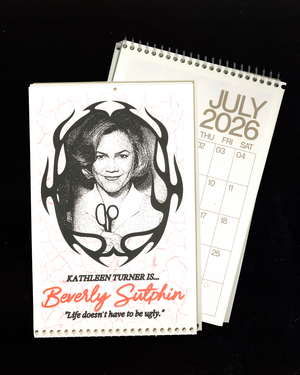 KATHLEEN TURNER IS...
Beverly Sutphin
"Life doesn't have to be ugly."
JULY
2026
THU FRI SAT
02 03 04
10
25